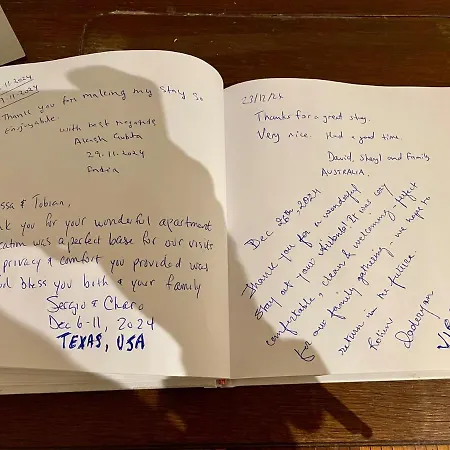 11.2024
11.2024
Thank you for making my stay so
enjoyable.
with best regards
Akash Gupta
29.11.2024
India
ssa & Tobian,
nk you for your wonderful apartment
cation was a perfect base for our visits
privacy & comfort you provided was
God bless you both & your family
Sergio & Charo
Dec 6-11, 2024
TEXAS, USA
23/12/24
Thanks for a great stay.
Very nice. Had a good time.
David, Sheryl and Family
AUSTRALIA.
Dec 26th, 2024
Thank you for a wonderful
stay at your It was very
comfortable, clean & welcoming. Perfect
for our family gathering. We hope to
return in the future.